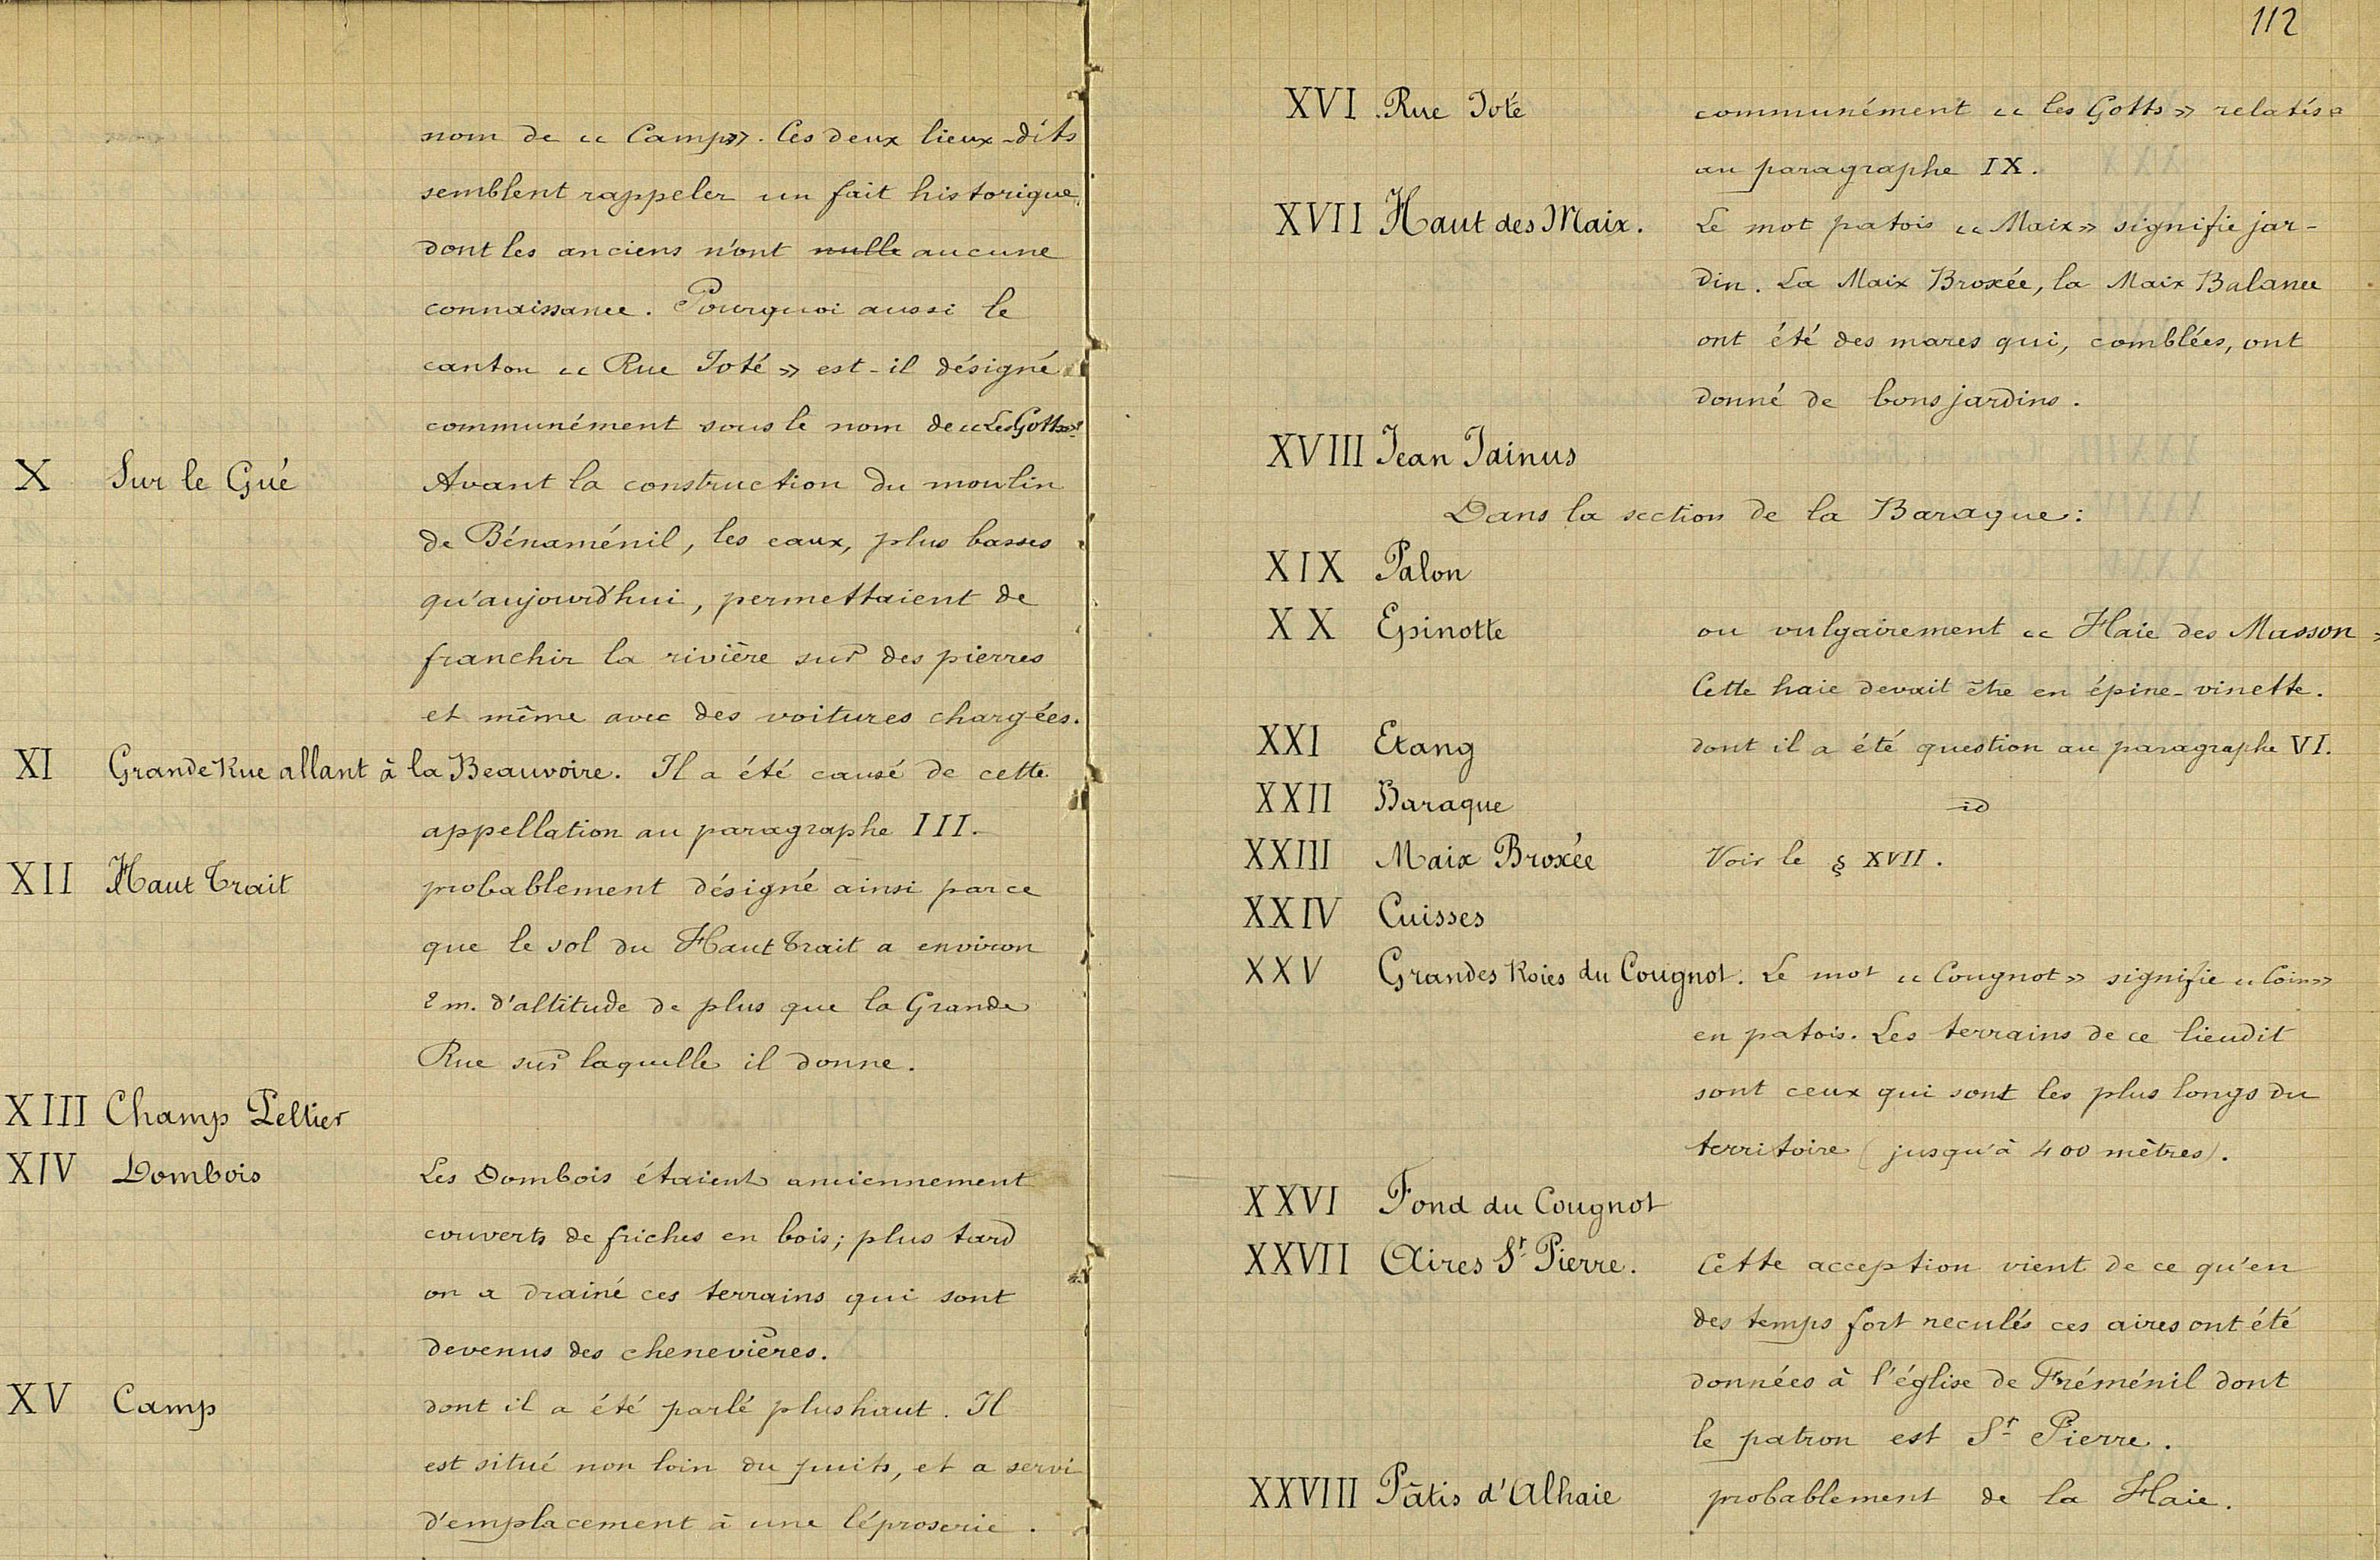 nom de « Camp ». Ces deux lieux-dits
semblent rappeler un fait historique
dont les anciens n'ont nulle aucune
connaissance. Pourquoi aussi le
canton « Rue Joté » est-il désigné
communément sous le nom de « Les Gotts »?
X Sur le Gué Avant la construction du moulin
de Bénaménil, les eaux, plus basses
qu'aujourd'hui, permettaient de
franchir la rivière sur des pierres
et même avec des voitures chargées.
XI Grande Rue allant à la Beauvoire. Il a été causé de cette
appellation au paragraphe III.
XII Haut Trait probablement désigné ainsi parce
que le sol du Haut Trait a environ
2 m. d'altitude de plus que la Grande
Rue sur laquelle il donne.
XIII Champ Peltier
XIV Dombois Les Dombois étaient anciennement
couverts de friches en bois; plus tard
on a drainé ces terrains qui sont
devenus des chenevières.
XV Camp dont il a été parlé plus haut. Il
est situé non loin du puits, et a servi
d'emplacement à une léproserie.
112
XVI Rue Joté communément « les Gotts » relatés
au paragraphe IX.
XVII Haut des Maix. Le mot patois « Maix » signifie jar-
din. La Maix Broxée, la Maix Balance
ont été des mares qui, comblées, ont
donné de bons jardins.
XVIII Jean Jainus
Dans la section de la Baraque:
XIX Palon
XX Epinotte ou vulgairement « Haie des Masson »
Cette haie devait être en épine-vinette.
XXI Etang dont il a été question au paragraphe VI.
XXII Baraque id
XXIII Maix Broxée Voir le § XVII.
XXIV Cuisses
XXV Grandes Roies du Cougnot. Le mot « Cougnot » signifie « Coin »
en patois. Les terrains de ce lieudit
sont ceux qui sont les plus longs du
territoire (jusqu'à 400 mètres).
XXVI Fond du Cougnot
XXVII Aires St Pierre. Cette acception vient de ce qu'en
des temps fort reculés ces aires ont été
données à l'église de Fréménil dont
le patron est St Pierre.
XXVIII Pâtis d'Alhaie probablement de la Haie.